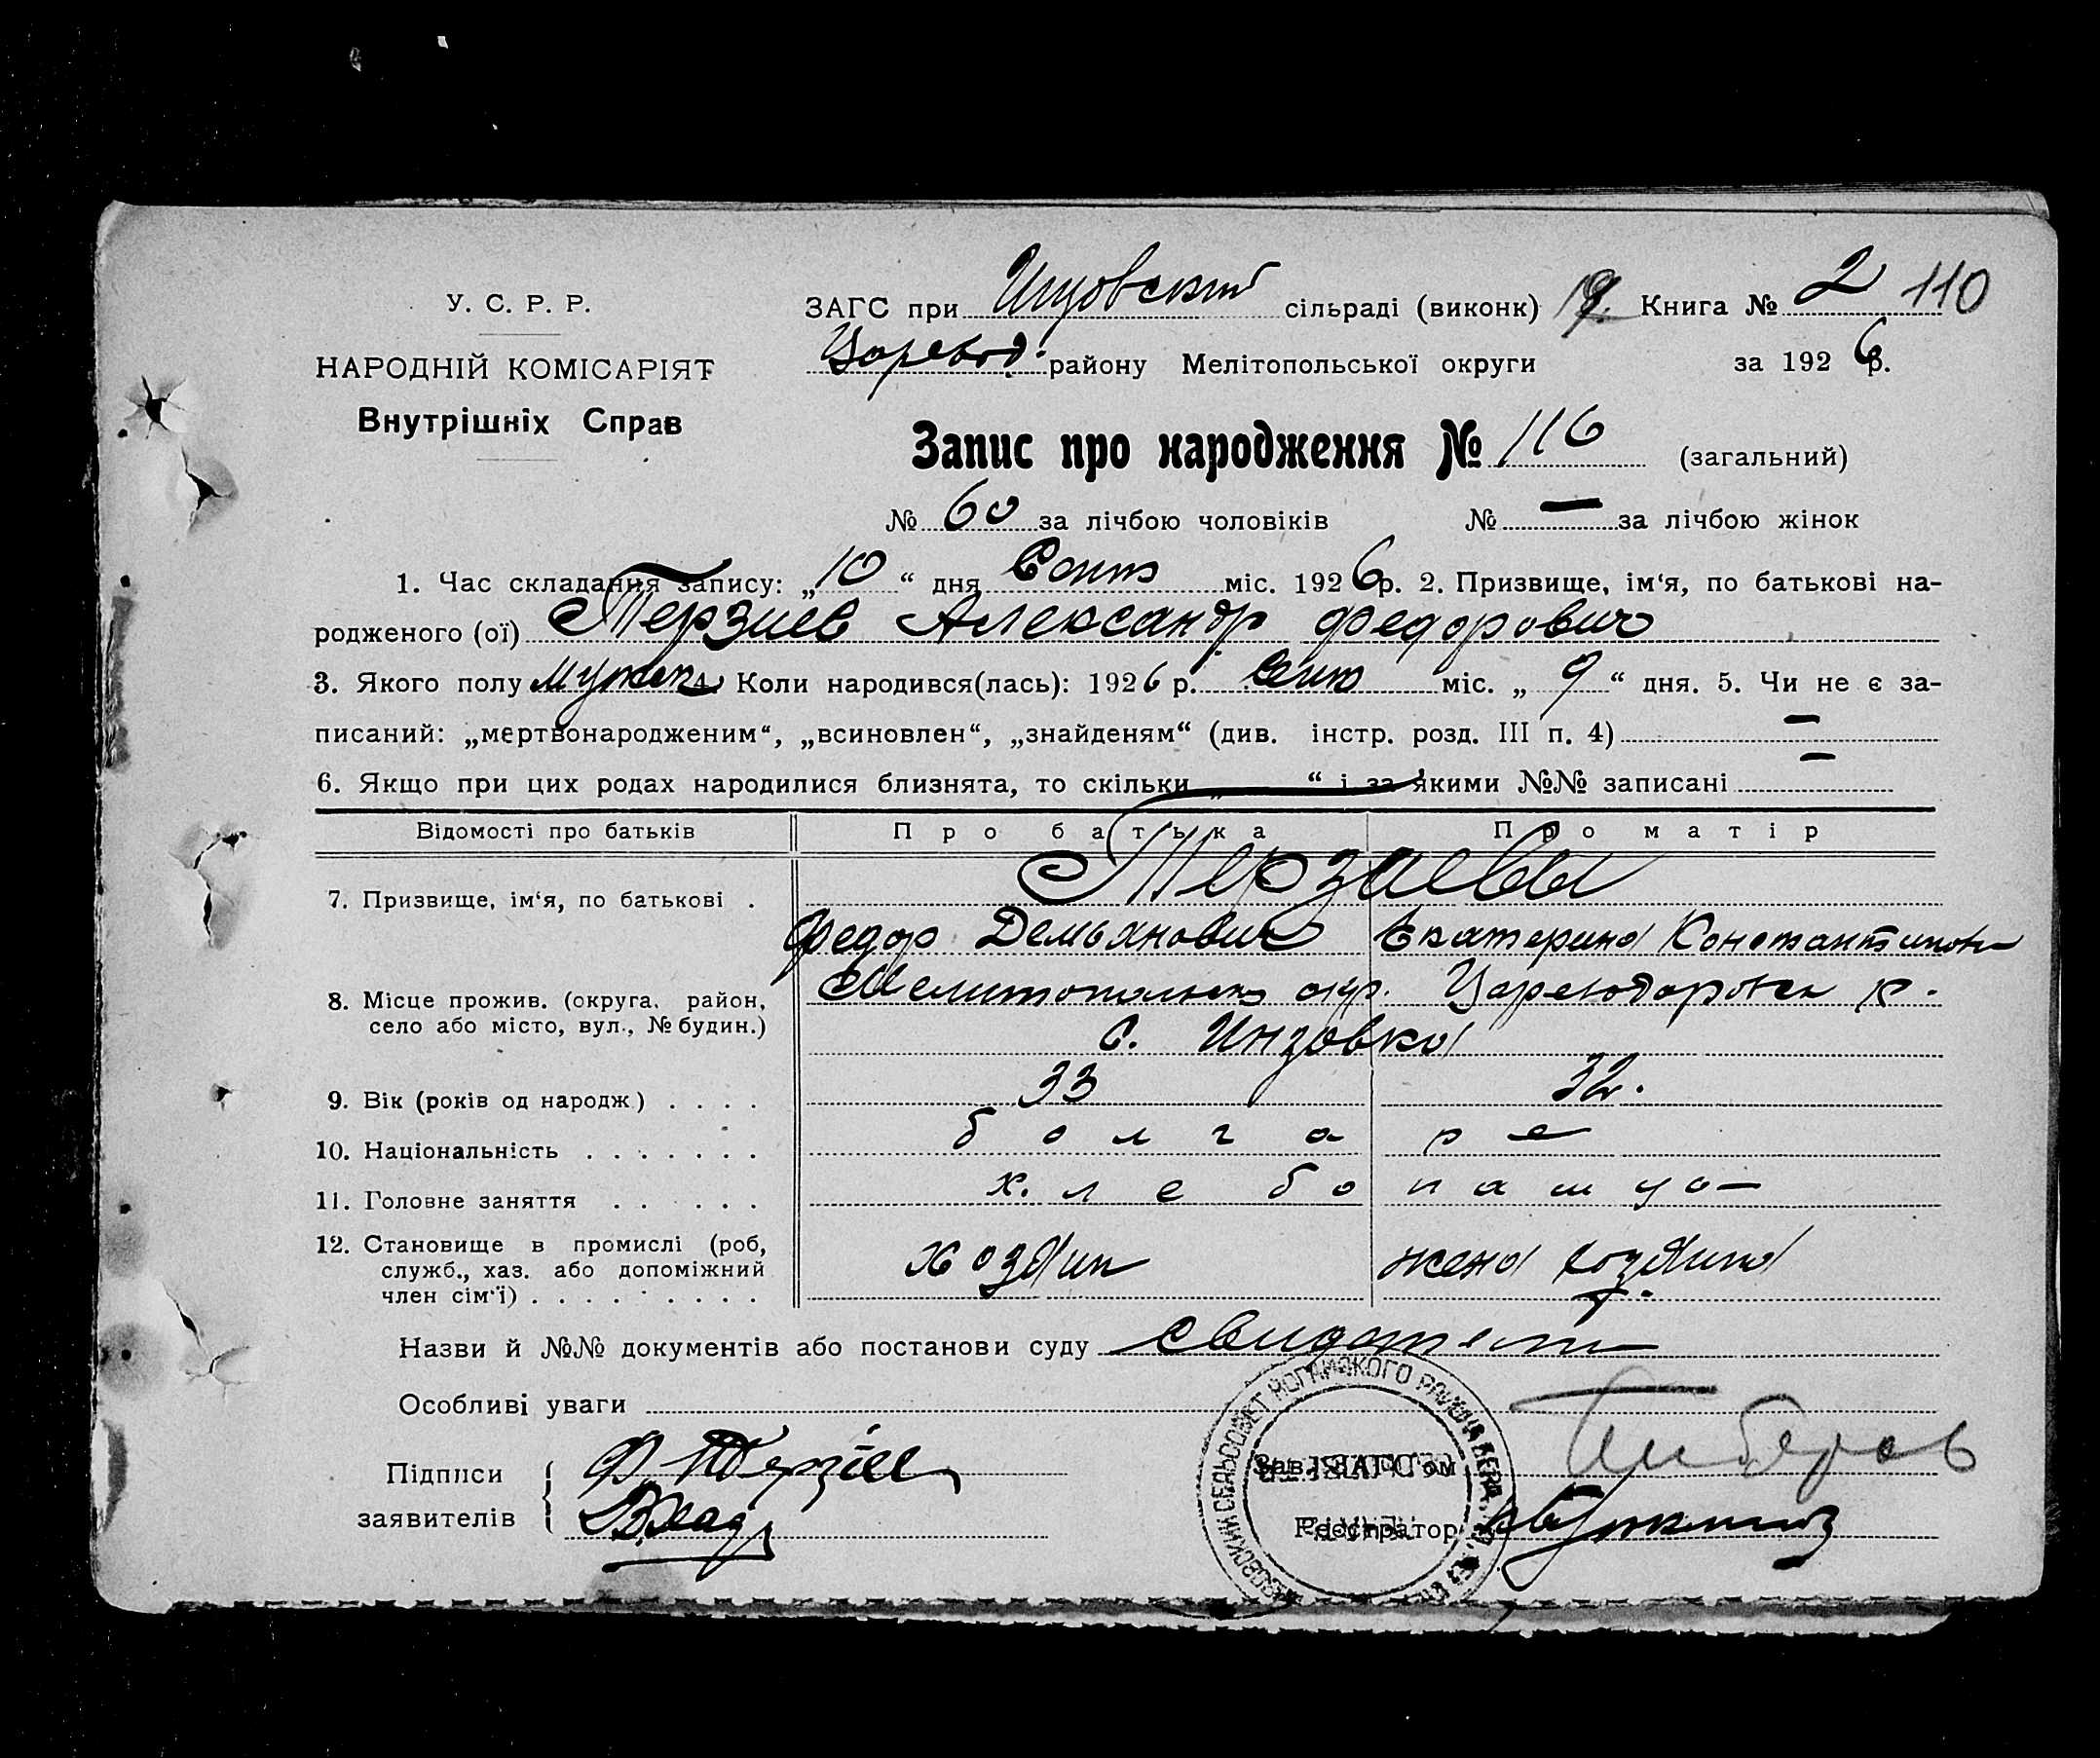 У. С. Р. Р.
НАРОДНІЙ КОМІСАРІЯТ
Внутрішніх Справ
ЗАГС при Инзовский сільраді (виконк) Книга № 2 110
Царевод. району Мелітопольської округи за 1926 р.
Запис про народження № 116 (загальний)
№ 60 за лічбою чоловіків № — за лічбою жінок
1. Час складання запису: „10“ дня Сент міс. 1926 р. 2. Призвище, ім‘я, по батькові на-
родженого (ої) Терзиев Александр Федорович
3. Якого полу мужск 4. Коли народився(лась): 1926 р. Сент міс. „9“ дня. 5. Чи не є за-
писаний: „мертвонародженим“, „всиновлен“, „знайденям“ (див. інстр. розд. III п. 4) —
6. Якщо при цих родах народилися близнята, то скільки „ “ і за якими №№ записані —
Відомості про батьків Про батька Про матір
7. Призвище, ім‘я, по батькові . Терзиевы
Федор Демьянович Екатерина Константинов
8. Місце прожив. (округа, район, село або місто, вул., № будин.) Мелитопольск окр. р.
с. Инзовка
9. Вік (років од народж) . . . . 33 32.
10. Національність . . . . . . . болгаре
11. Головне заняття . . . . . хлебопашцы
12. Становище в промислі (роб, служб., хаз. або допоміжний член сім‘ї) . . . . . . . . . хозяин жена хозяина
Назви й №№ документів або постанови суду
Особливі уваги
Підписи
заявителів
Ф. Терзіев
Зав. ЗАГС‘ом
Реєстратор
СЕЛЬСОВЕТ НОГАЙСКОГО РАЙОНА